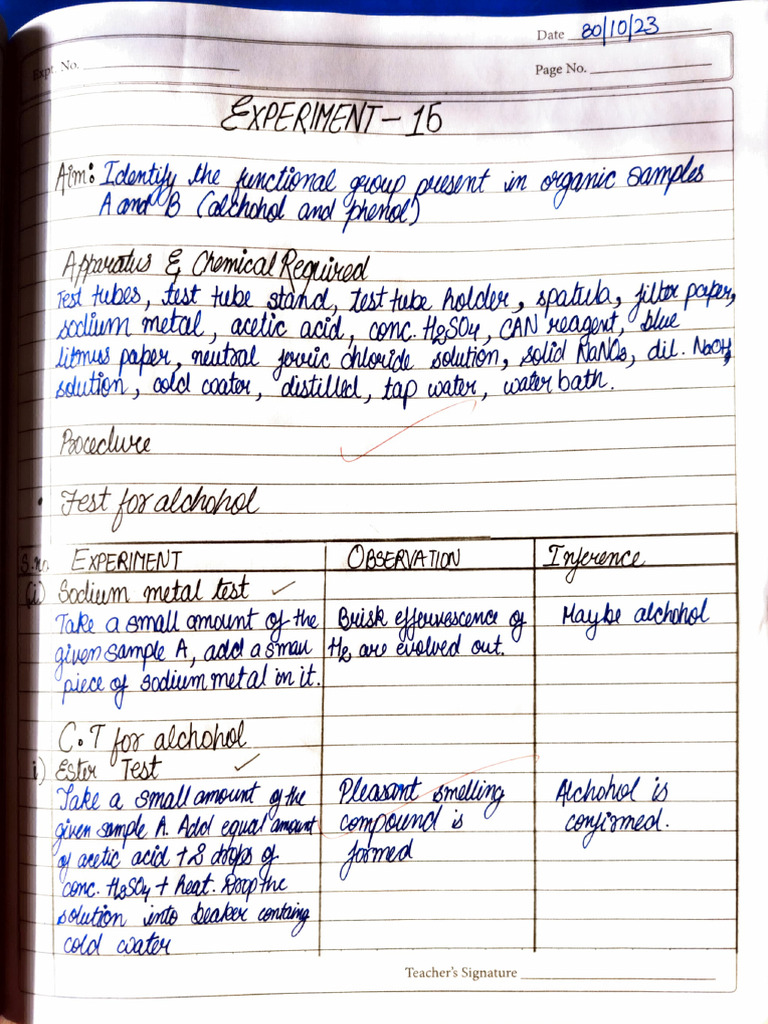 Date 30/10/23
Expt. No.
Page No.
EXPERIMENT - 15
Aim: Identify the functional group present in organic samples
A and B (alchohol and phenol)
Apparatus & Chemical Required
Test tubes, test tube stand, test tube holder, spatula, filter paper,
sodium metal, acetic acid, conc. H2SO4, CAN reagent, blue
litmus paper, neutral ferric chloride solution, solid NaNO2, dil. NaOH
solution, cold water, distilled, tap water, water bath.
Procedure
• Test for alchohol
S.no. EXPERIMENT OBSERVATION Inference
(i) Sodium metal test
Take a small amount of the Brisk effervescence of Maybe alchohol
given sample A, add a small H2 are evolved out.
piece of sodium metal in it.
C.T for alchohol
i) Ester Test
Take a small amount of the Pleasant smelling Alchohol is
given sample A. Add equal amount compound is confirmed.
of acetic acid + 2 drops of formed
conc. H2SO4 + heat. Drop the
solution into beaker containg
cold water
Teacher's Signature